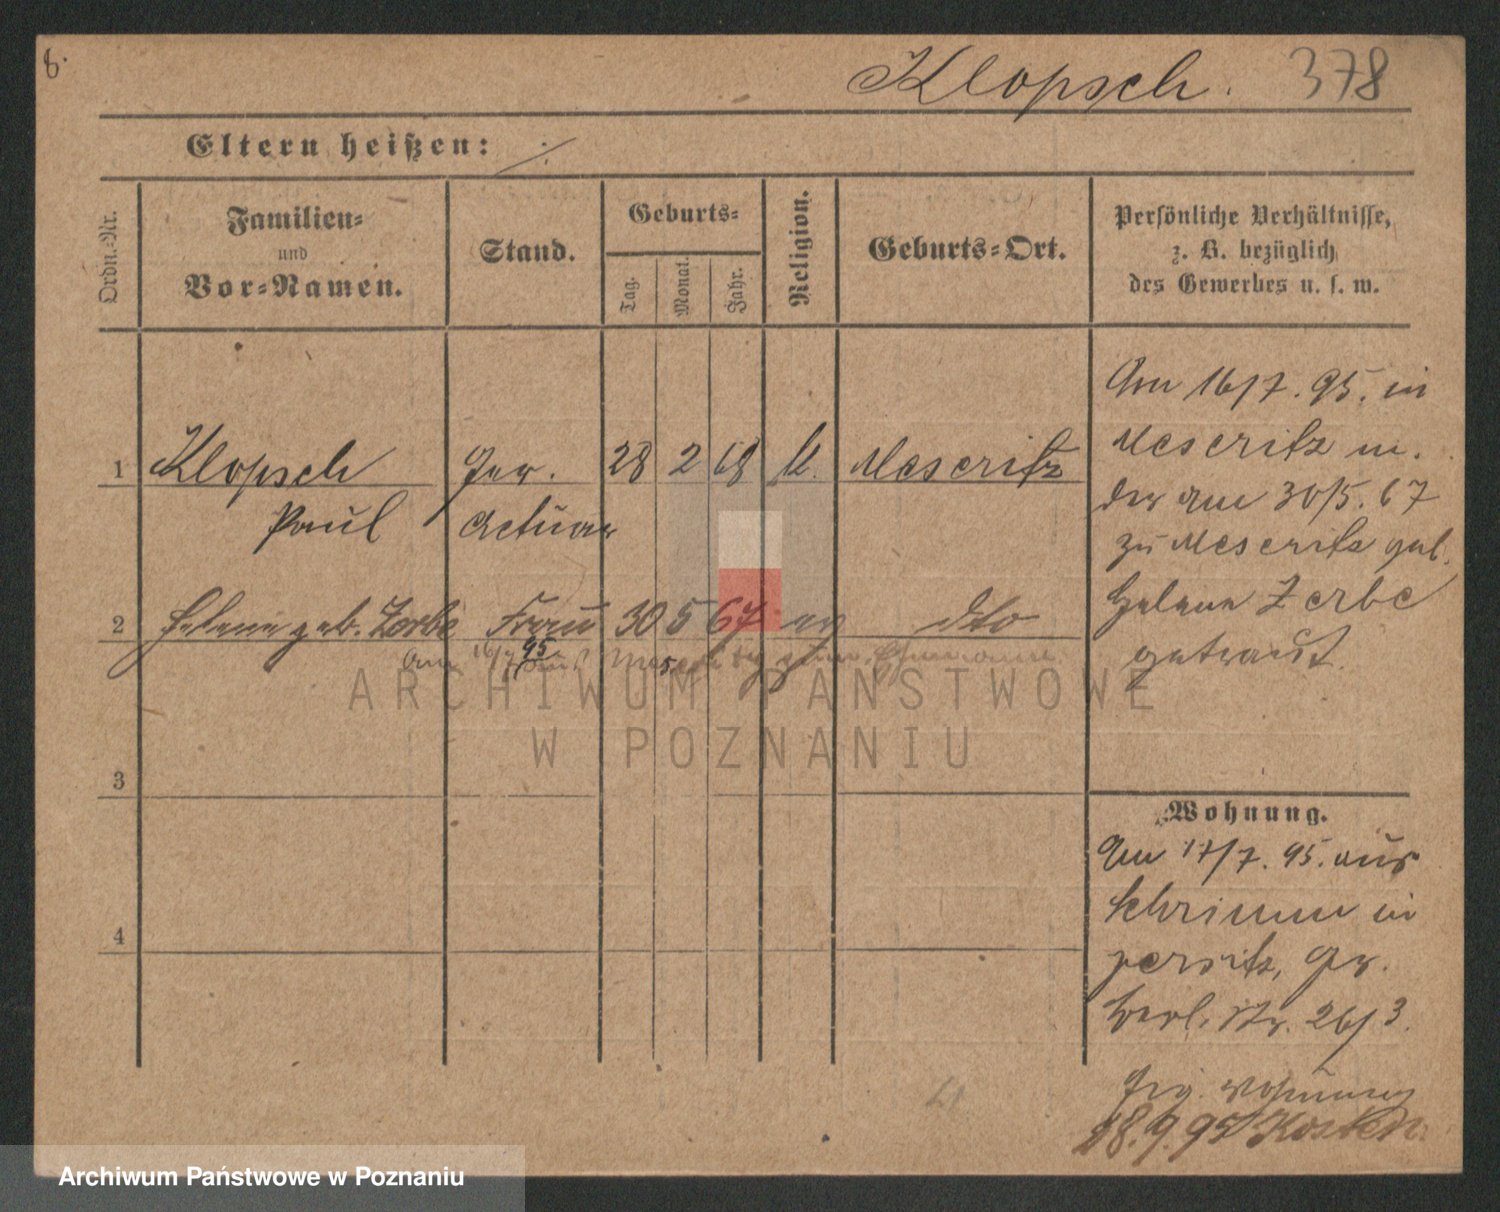 8.
Klopsch. 378
Eltern heißen: ./.
Ordn.-Nr.
Familien-
und
Vor-Namen.
Stand.
Geburts-
Tag.
Monat.
Jahr.
Religion.
Geburts-Ort.
Persönliche Verhältnisse,
z. B. bezüglich
des Gewerbes u. s. w.
1 Klopsch Ger. 28 2 68 k. Meseritz
Paul Actuar
2 Helene geb. Zerbe Frau 30 5 67 ev dto
am 16/7 95
3
4
Am 16/7. 95. in
Meseritz m.
der am 30/5. 67
zu Meseritz geb.
Helene Zerbe
getraut.
Wohnung.
Am 17/7. 95. aus
Schrimm in
Jersitz, Gr.
Berl. Str. 26/3.
Wohnung
28.9.95 Kosten
ARCHIWUM PAŃSTWOWE
W POZNANIU
Archiwum Państwowe w Poznaniu